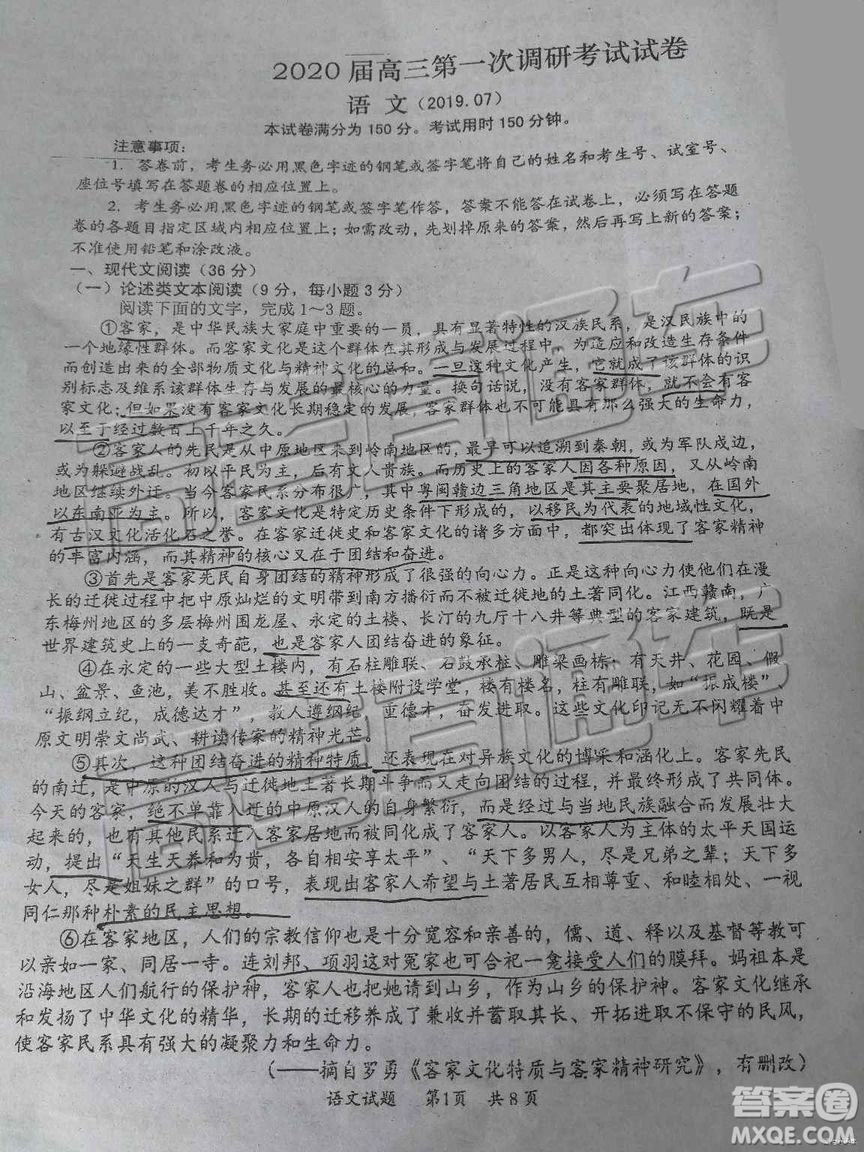 2020届高三第一次调研考试试卷
语 文（2019.07）
本试卷满分为150分。考试用时150分钟。
注意事项：
1. 答卷前，考生务必用黑色字迹的钢笔或签字笔将自己的姓名和考生号、试室号、
座位号填写在答题卷的相应位置上。
2. 考生务必用黑色字迹的钢笔或签字笔作答，答案不能答在试卷上，必须写在答题
卷的各题目指定区域内相应位置上；如需改动，先划掉原来的答案，然后再写上新的答案；
不准使用铅笔和涂改液。
一、现代文阅读（36分）
（一）论述类文本阅读（9分，每小题3分）
阅读下面的文字，完成1～3题。
①客家，是中华民族大家庭中重要的一员，具有显著特性的汉族民系，是汉民族中的
一个地缘性群体。而客家文化是这个群体在其形成与发展过程中，为适应和改造生存条件
而创造出来的全部物质文化与精神文化的总和。一旦这种文化产生，它就成了该群体的识
别标志及维系该群体生存与发展的最核心的力量。换句话说，没有客家群体，就不会有客
家文化；但如果没有客家文化长期稳定的发展，客家群体也不可能具有那么强大的生命力，
以至于经过数百上千年之久。
②客家人的先民是从中原地区来到岭南地区的，最早可以追溯到秦朝，或为军队戍边，
或为躲避战乱。初以平民为主，后有文人贵族。而历史上的客家人因各种原因，又从岭南
地区继续外迁。当今客家民系分布很广，其中粤闽赣边三角地区是其主要聚居地，在国外
以东南亚为主。所以，客家文化是特定历史条件下形成的，以移民为代表的地域性文化，
有古汉文化活化石之誉。在客家迁徙史和客家文化的诸多方面中，都突出体现了客家精神
的丰富内涵，而其精神的核心又在于团结和奋进。
③首先是客家先民自身团结的精神形成了很强的向心力。正是这种向心力使他们在漫
长的迁徙过程中把中原灿烂的文明带到南方播衍而不被迁徙地的土著同化。江西赣南，广
东梅州地区的多层梅州围龙屋、永定的土楼、长汀的九厅十八井等典型的客家建筑，既是
世界建筑史上的一支奇葩，也是客家人团结奋进的象征。
④在永定的一些大型土楼内，有石柱雕联、石鼓承柱、雕梁画栋；有天井、花园、假
山、盆景、鱼池，美不胜收。甚至还有土楼附设学堂，楼有楼名，柱有雕联，如“振成楼”、
“振纲立纪，成德达才”，教人遵纲纪、重德才，奋发进取。这些文化印记无不闪耀着中
原文明崇文尚武、耕读传家的精神光芒。
⑤其次，这种团结奋进的精神特质，还表现在对异族文化的博采和涵化上。客家先民
的南迁，是中原的汉人与迁徙地土著长期斗争而又走向团结的过程，并最终形成了共同体。
今天的客家，绝不单靠入迁的中原汉人的自身繁衍，而是经过与当地民族融合而发展壮大
起来的，也有其他民系迁入客家居地而被同化成了客家人。以客家人为主体的太平天国运
动，提出“天生天养和为贵，各自相安享太平”、“天下多男人，尽是兄弟之辈；天下多
女人，尽是姐妹之群”的口号，表现出客家人希望与土著居民互相尊重、和睦相处、一视
同仁那种朴素的民主思想。
⑥在客家地区，人们的宗教信仰也是十分宽容和亲善的，儒、道、释以及基督等教可
以亲如一家、同居一寺。连刘邦、项羽这对冤家也可合祀一龛接受人们的膜拜。妈祖本是
沿海地区人们航行的保护神，客家人也把她请到山乡，作为山乡的保护神。客家文化继承
和发扬了中华文化的精华，长期的迁移养成了兼收并蓄取其长、开拓进取不保守的民风，
使客家民系具有强大的凝聚力和生命力。
（——摘自罗勇《客家文化特质与客家精神研究》，有删改）
语文试题 第1页 共8页
答案圈
MXQE.COM